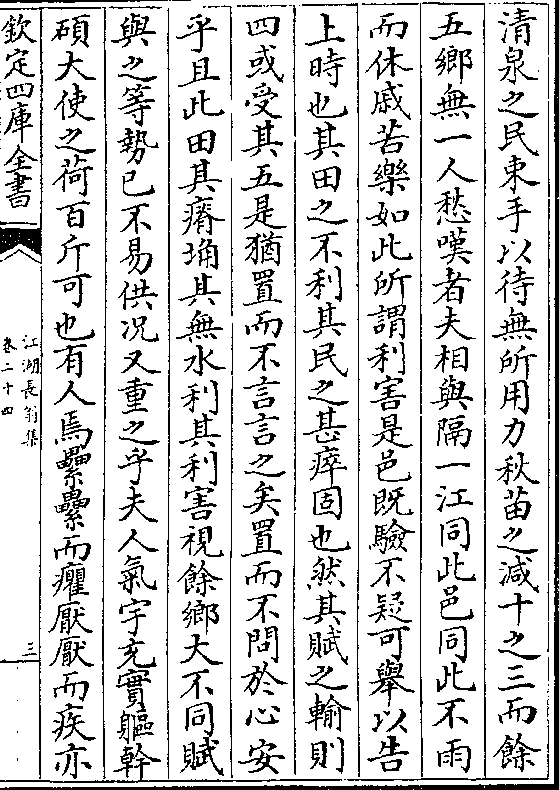 清泉之民束手以待無所用力秋苗之減十之三而餘
五鄉無一人愁嘆者夫相與隔一江同此邑同此不雨
而休戚苦樂如此所謂利害是邑既驗不疑可舉以告
上時也其田之不利其民之甚瘁固也然其賦之輸則
四或受其五是猶置而不言言之矣置而不問於心安
乎且此田其瘠埆其無水利其利害視餘鄉大不同賦
與之等勢已不易供况又重之乎夫人氣宇充實軀幹
碩大使之荷百斤可也有人焉纍纍而癯厭厭而疾亦
欽定四庫全書
江湖長翁集
卷二十四
三